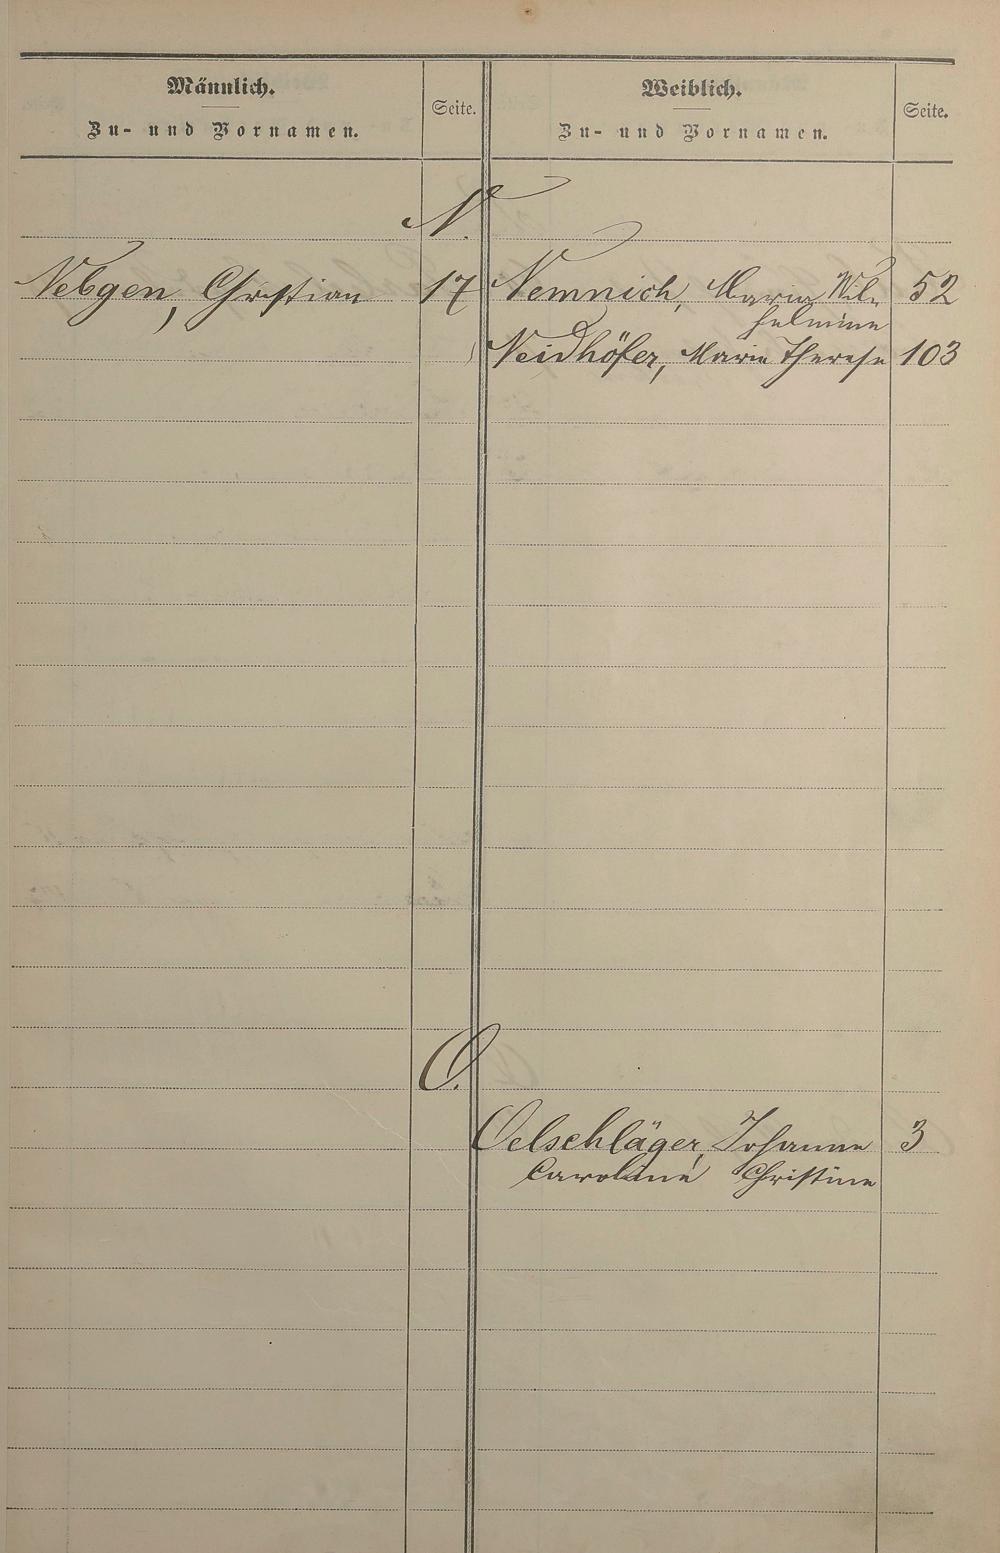 Männlich.
Zu- und Vornamen.
Seite.
Weiblich.
Zu- und Vornamen.
Seite.
N.
Nebgen, Christian 17
Nemnich, Maria Wil-
helmine 52
Neidhöfer, Maria Therese 103
O.
Oelschläger, Johanne 3
Caroline Christine